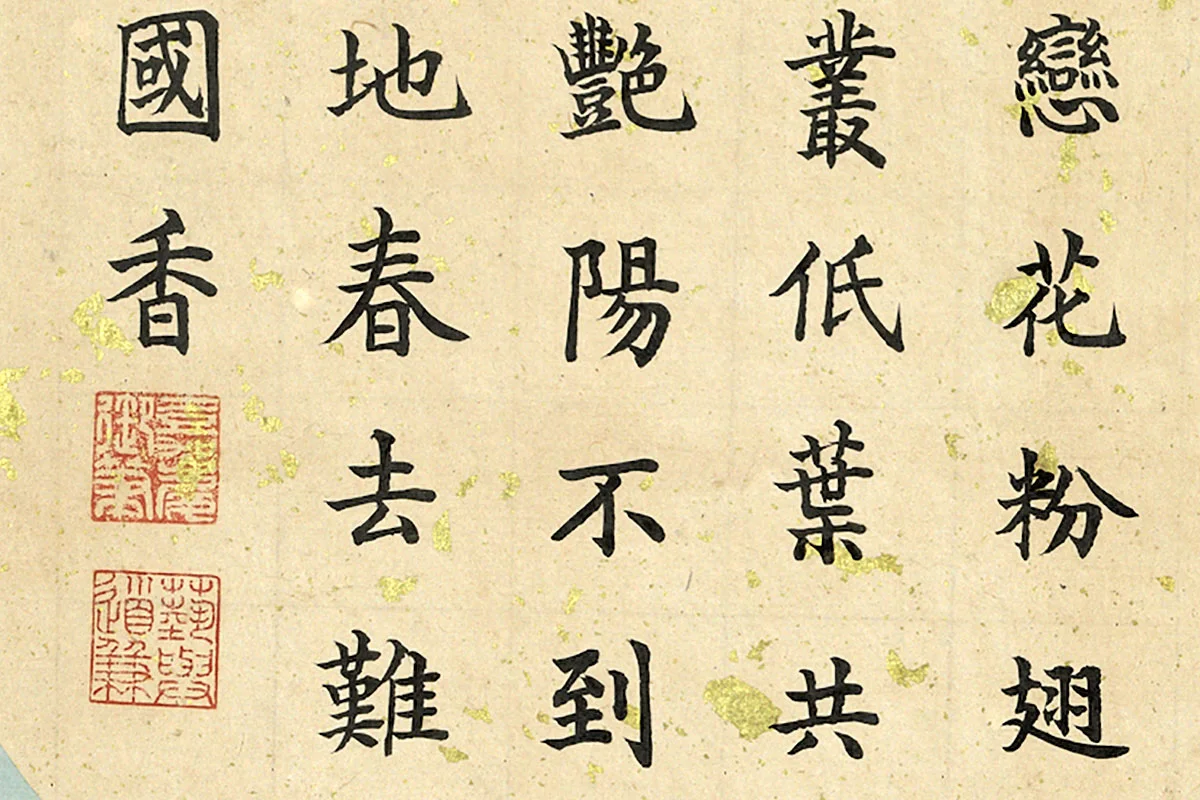 戀花粉翅
叢低葉共
艷陽不到
地春去難
國香
藝與道兼